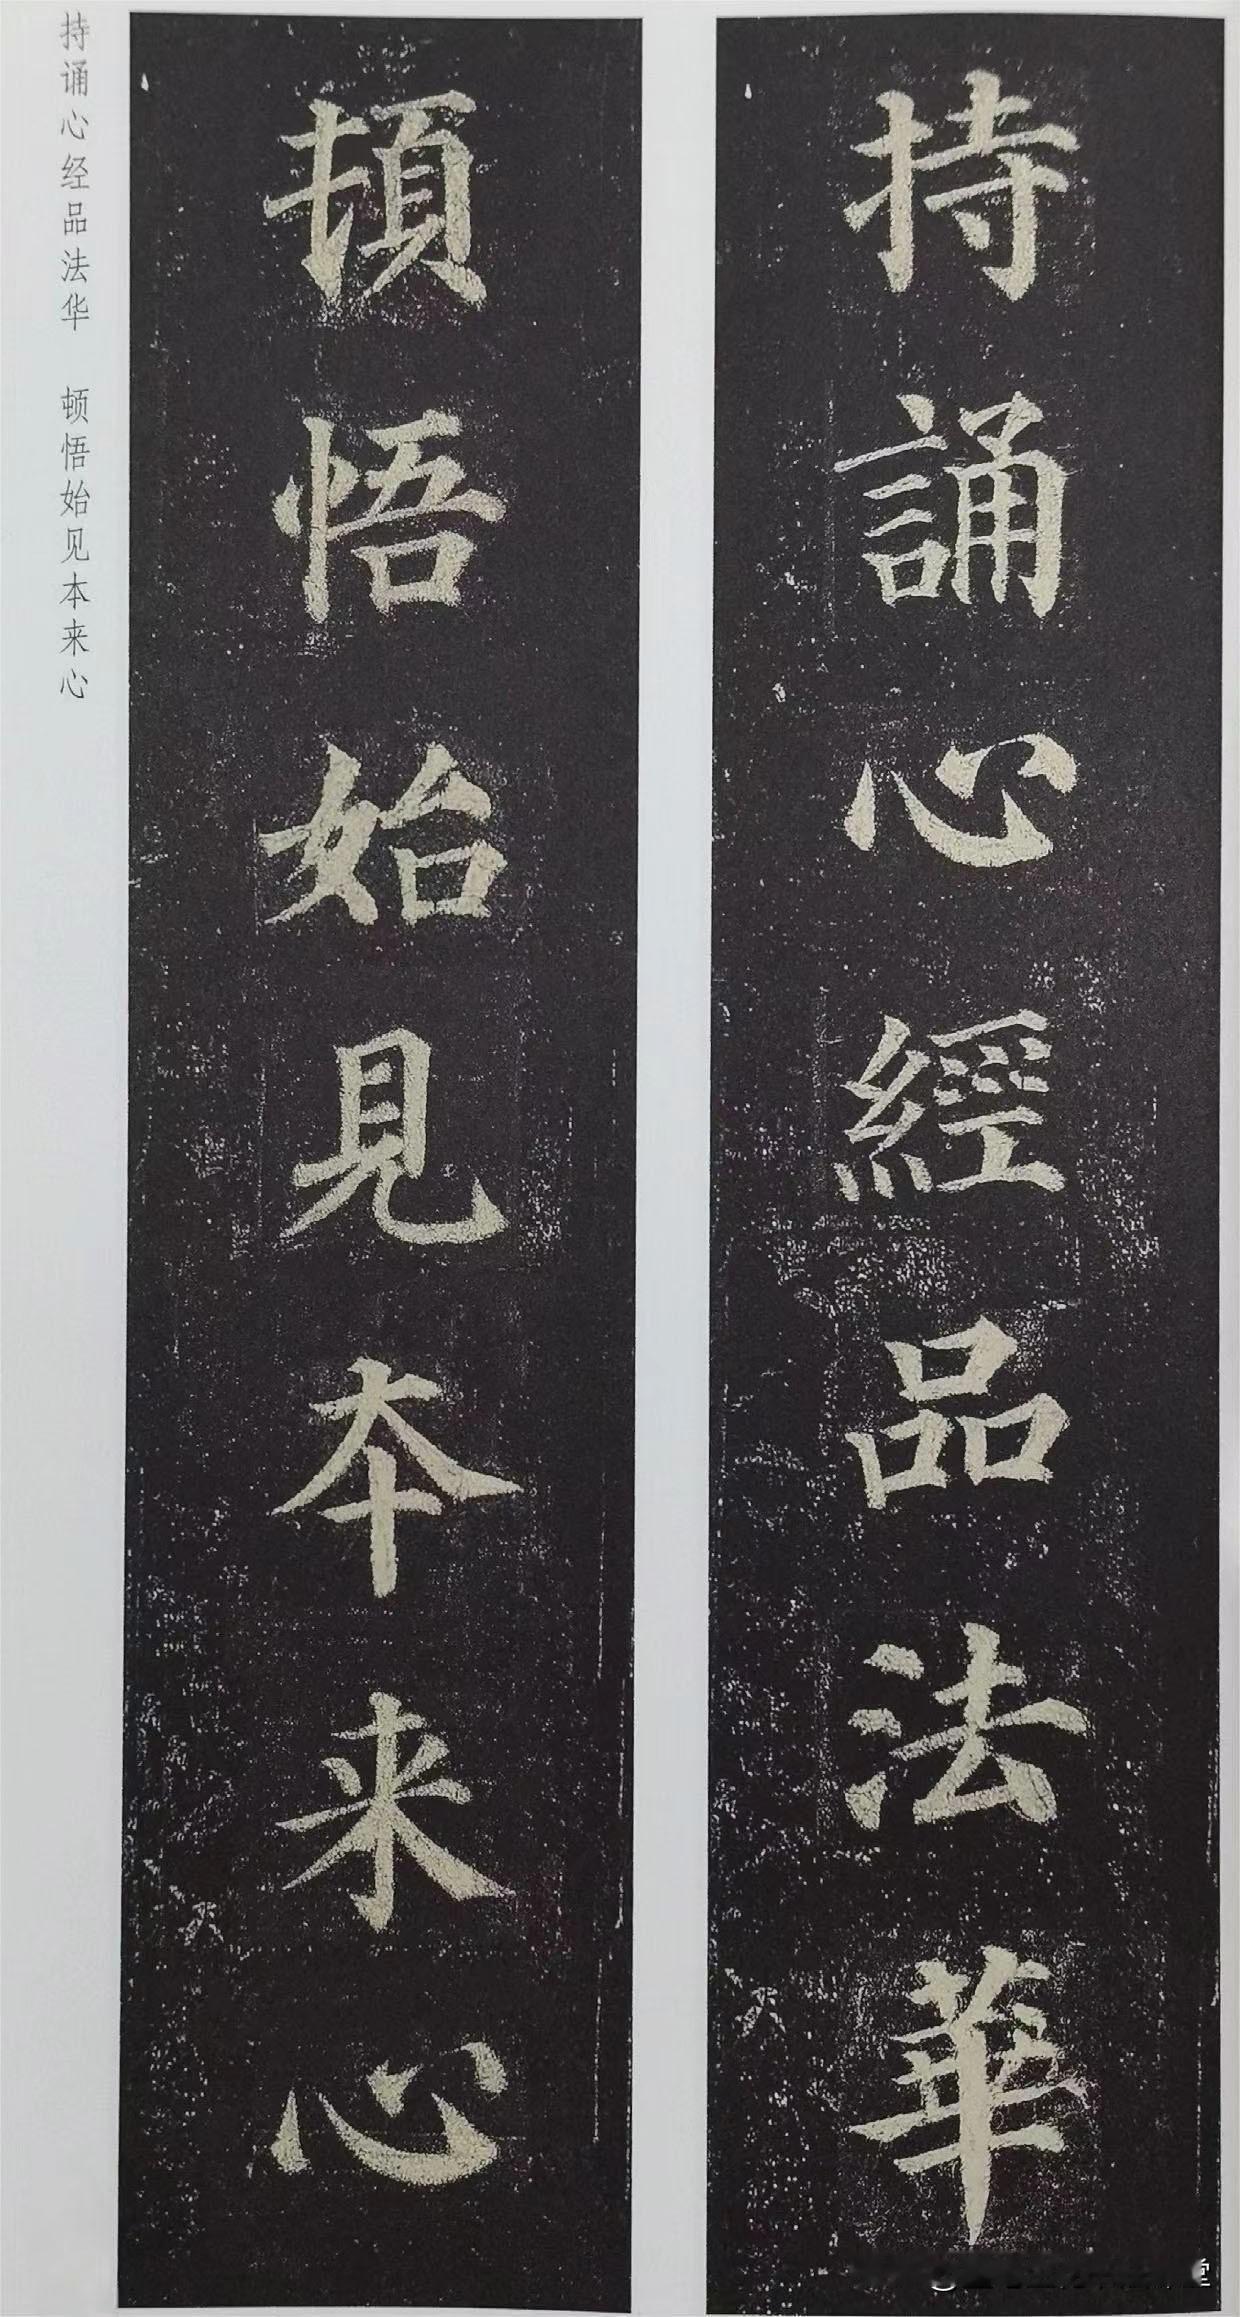 持誦心經品法華
頓悟始見本来心
持诵心经品法华 顿悟始见本来心